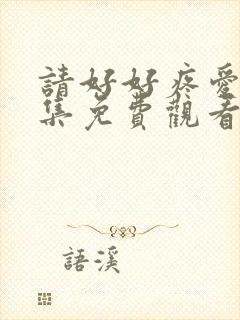 請好好疼愛
集免費觀看
語溪